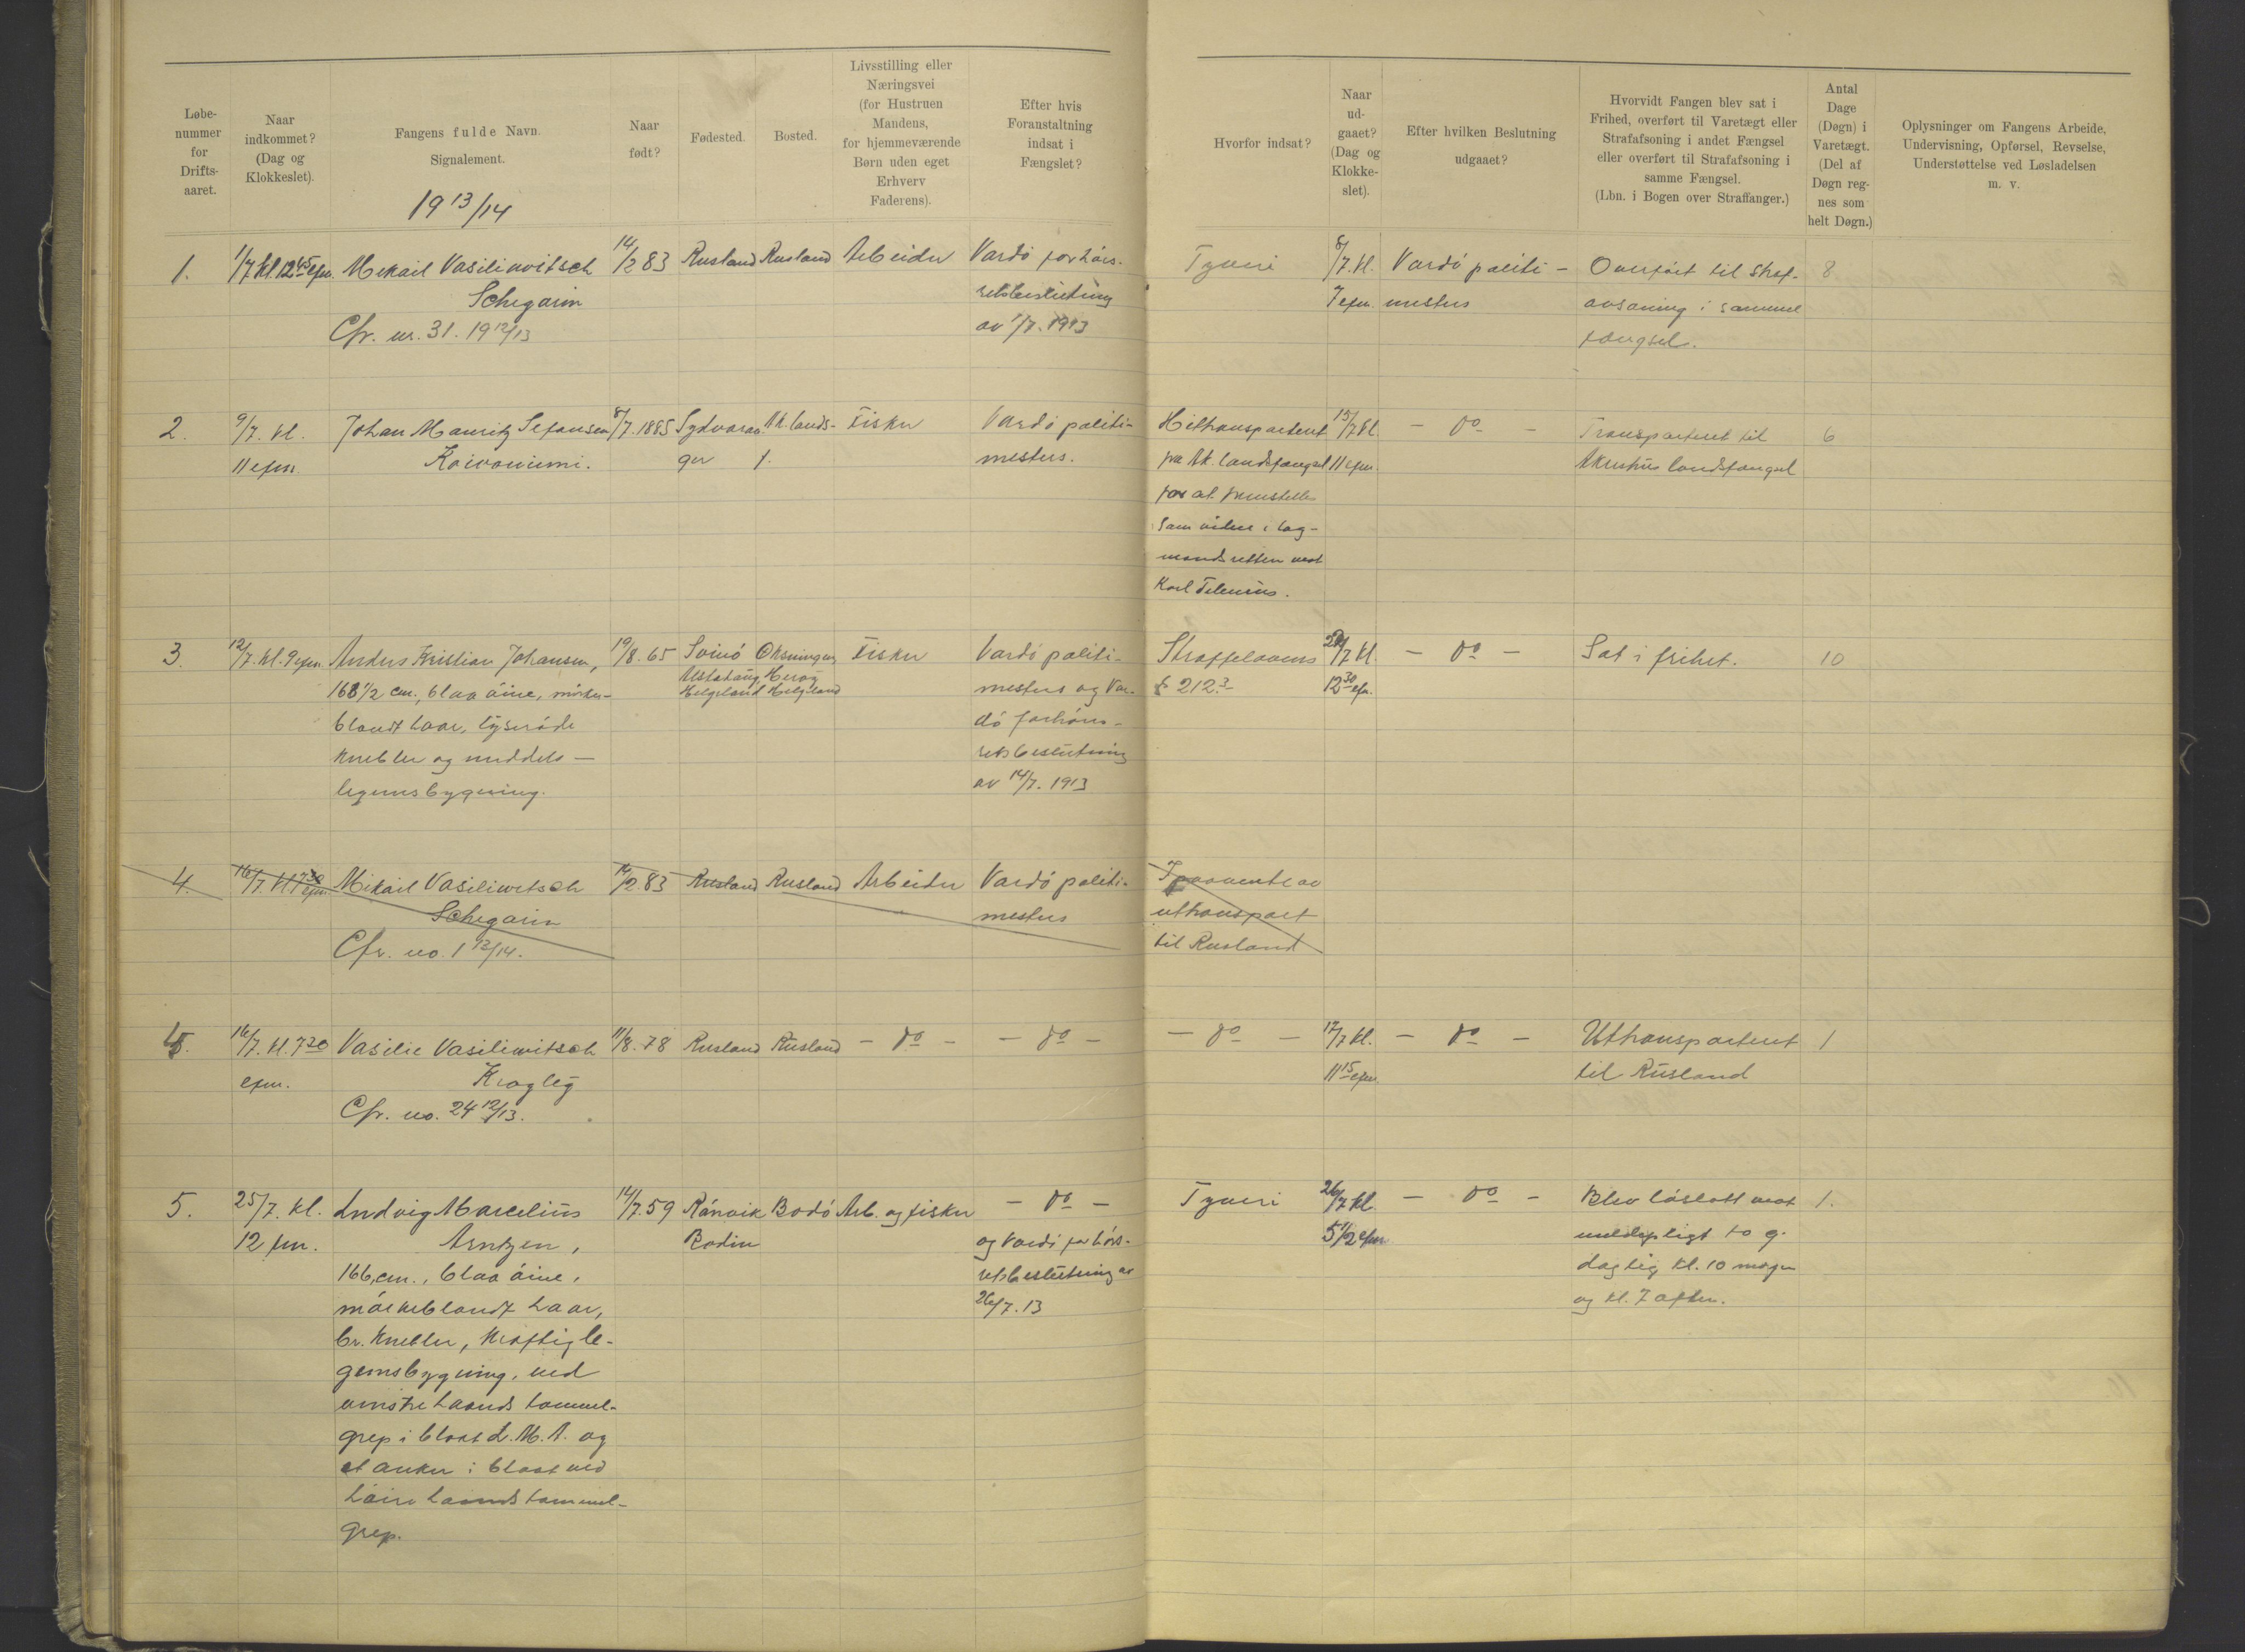 Løbe-
nummer
for
Drifts-
aaret.
Naar
indkommet?
(Dag og
Klokkeslet).
Fangens fulde Navn.
Signalement.
1913/14
Naar
født?
Fødested.
Bosted.
Livsstilling eller
Næringsvei
(for Hustruen
Mandens,
for hjemmeværende
Børn uden eget
Erhverv
Faderens).
Efter hvis
Foranstaltning
indsat i
Fængslet?
Hvorfor indsat?
Naar
ud-
gaaet?
(Dag og
Klokke-
slet).
Efter hvilken Beslutning
udgaaet?
Hvorvidt Fangen blev sat i
Frihed, overført til Varetægt eller
Strafafsoning i andet Fængsel
eller overført til Strafafsoning i
samme Fængsel.
(Lbn. i Bogen over Straffanger.)
Antal
Dage
(Døgn) i
Varetægt.
(Del af
Døgn reg-
nes som
helt Døgn.)
Oplysninger om Fangens Arbeide,
Undervisning, Opførsel, Revselse,
Understøttelse ved Løsladelsen
m. v.
1.
1/7 kl. 12 45 efm.
Mikail Vasiliwitsch
Schegarin
Cfr. nr. 31. 1912/13
14/2 83
Rusland
Rusland
Arbeider
Vardö forhörs-
retsbeslutning
av 1/7. 1913
Tyveri
8/7. kl.
7 efm.
Vardö politi-
mester
Overfört til straf-
avsoning i samme
fængsel.
8
2.
9/7. kl.
11 efm.
Johan Mauritz Sefansen
Koivoniemi.
8/7. 1885
Sydvaran-
ger
Ak. lands-
f.
Fisker
Vardö politi-
mester.
Hittransportert
fra Ak. landsfængsel
for at fremstilles
som vidne i lag-
mandsretten mot
Karl Telenius.
15/7 kl.
11 efm.
— do —
Transporteret til
Akershus landsfængsel
6
3.
12/7. kl. 9 efm.
Anders Kristian Johansen,
168 1/2 cm., blaa öine, mörke-
blondt haar, lyseröde
knebler og middels —
legemsbygning.
19/8. 65
Svinö
Alstahaug
Helgeland
Oksningen
Heröy
Helgeland
Fisker
Vardö politi-
mester og Var-
dö forhörs-
retsbeslutning
av 14/7. 1913
Straffelovens
§ 212.3
7 kl.
12 30 efm.
— do —
Sat i frihet.
10
4.
16/7. kl 7 30 efm.
Mikail Vasiliwitsch
Schegarin
Cfr. no. 1 13/14.
14/2 83
Rusland
Rusland
Arbeider
Vardö politi-
mester
I paavente av
uttransport
til Rusland
4.
16/7. kl. 7 30
efm.
Vasilie Vasiliwitsch
Kragleg
Cfr. no. 24 12/13.
11/8. 78
Rusland
Rusland
— do —
— do —
— do —
17/7 kl.
11 15 efm.
— do —
Uttransporteret
til Rusland
1
5.
25/7. kl.
12 fm.
Ludvig Marcelius
Arntzen,
166, cm., blaa öine,
mörkeblondt haar,
br. knebler, kraftig le-
gemsbygning, ved
vinstre haands tommel-
grep i blaat L. M. A. og
et anker i blaat ved
höire haands tommel-
grep.
14/7. 59
Rönvik
Bodin
Bodö
Arb. og fisker
— do —
og Vardö forhörs-
retsbeslutning av
26/7. 13
Tyveri
26/7 kl.
5 1/2 efm
— do —
Blev löslatt mot
meldepligt to g.
daglig kl. 10 morgen
og kl. 7 aften.
1.